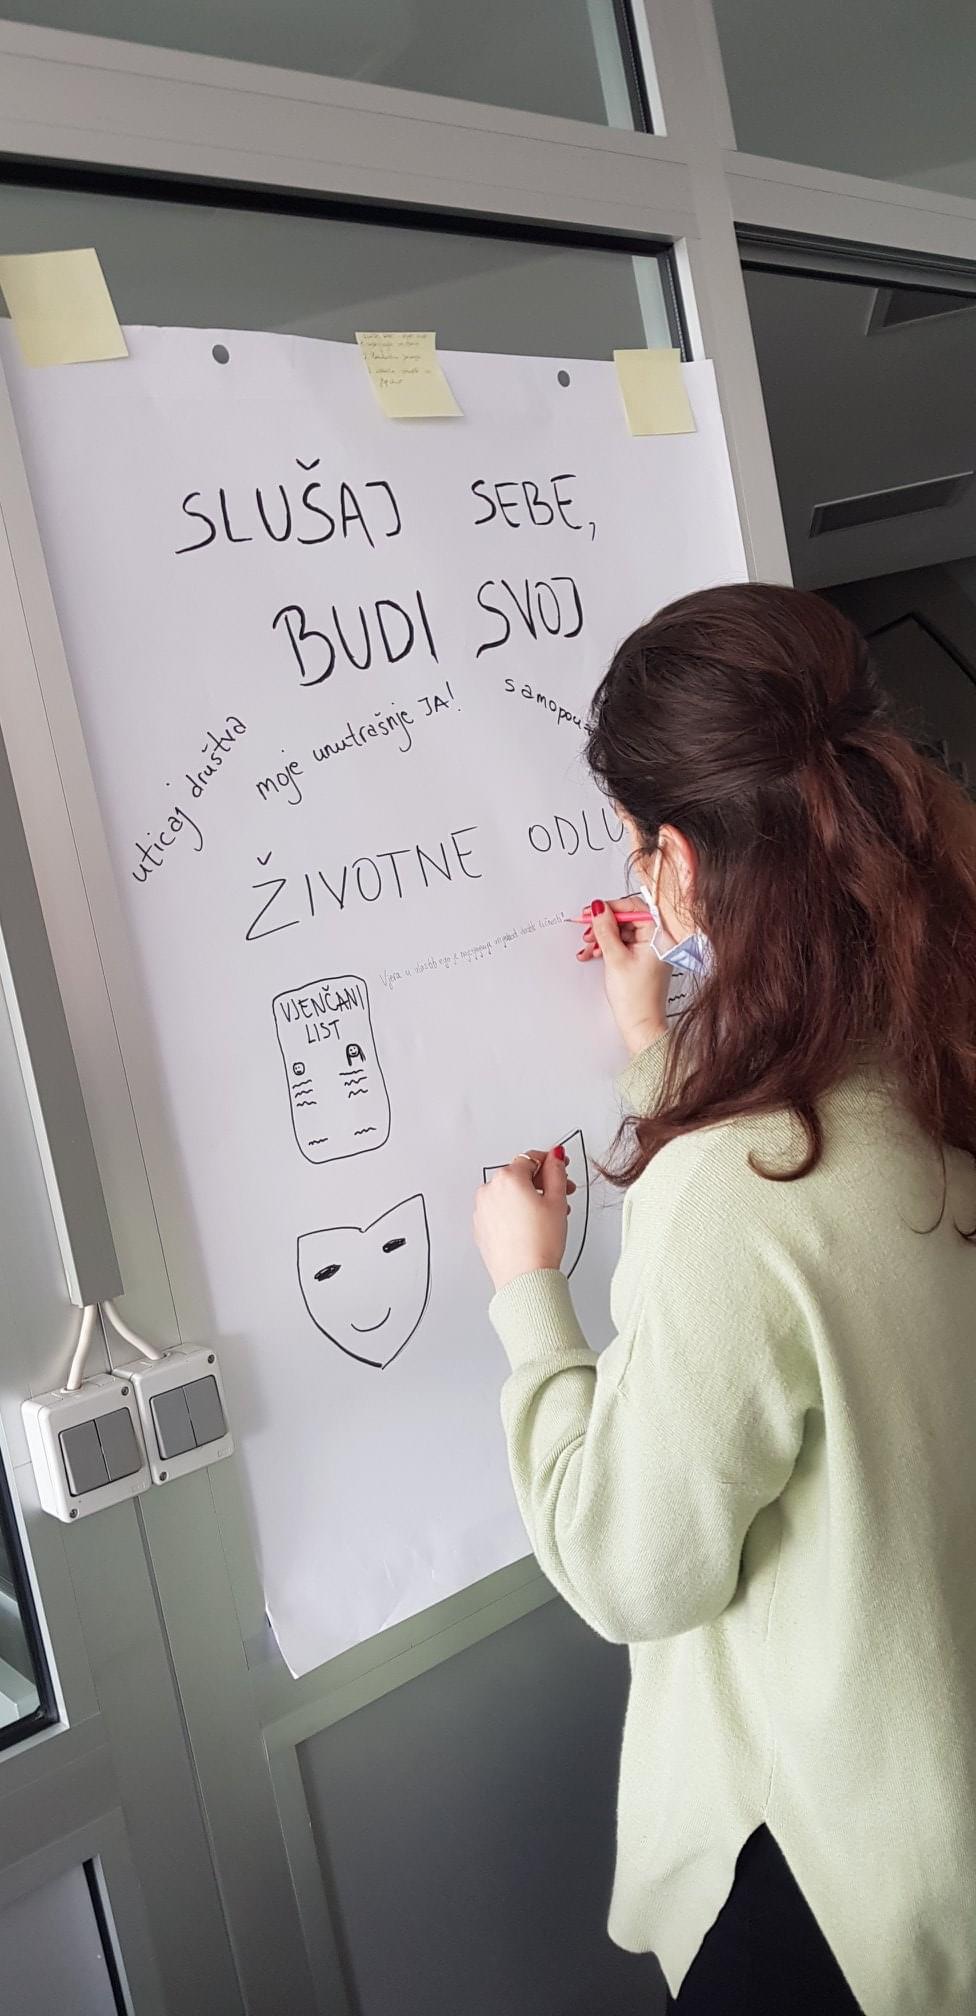 SLUŠAJ SEBE,
BUDI SVOJ
uticaj društva
moje unutrašnje JA!
samopou
ŽIVOTNE ODLU
Vjera u
VJENČANI
LIST